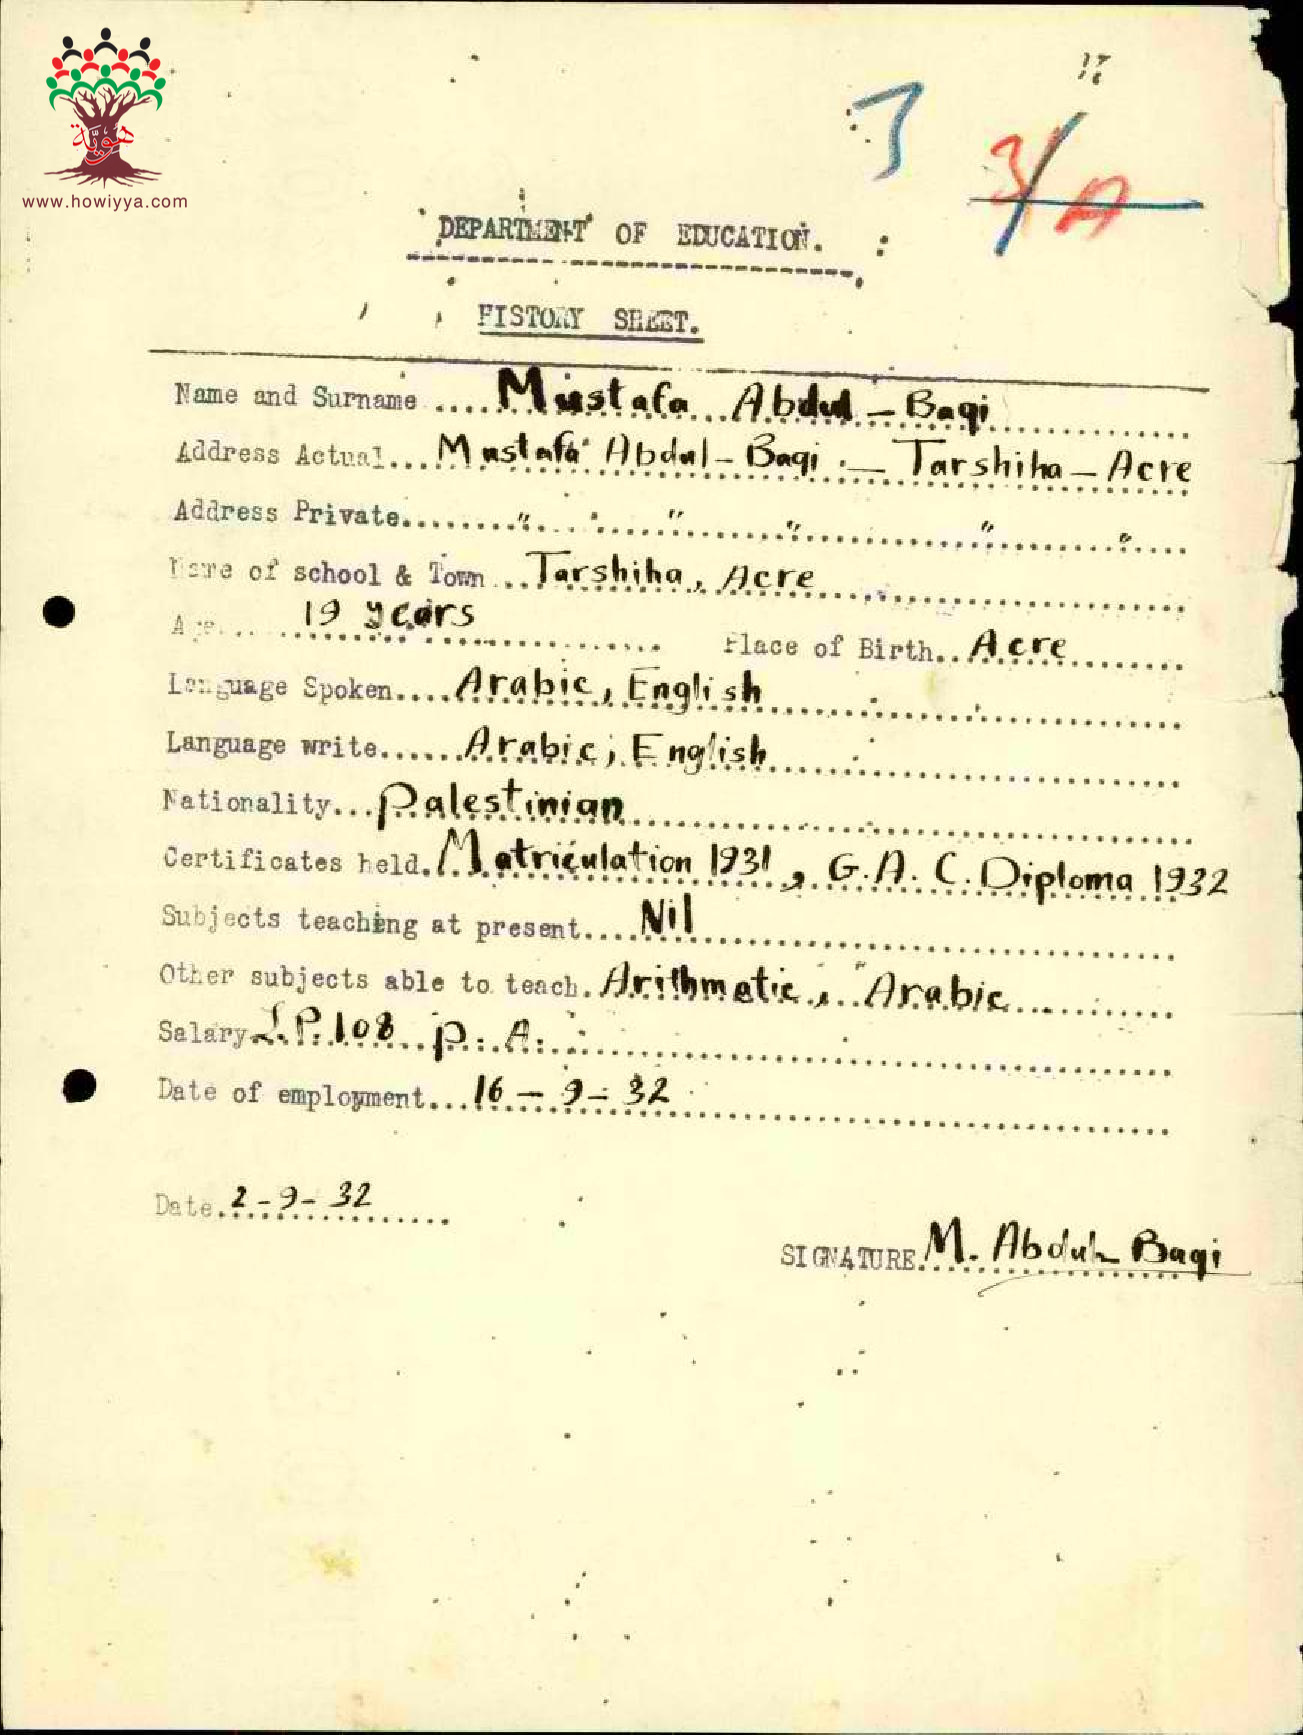 هويّة
www.howiyya.com
3
3/A
DEPARTMENT OF EDUCATION.
HISTORY SHEET.
Name and Surname .... Mustafa Abdul - Baqi
Address Actual... Mustafa Abdul - Baqi - Tarshiha - Acre
Address Private........ " " " " "
Name of school & Town ... Tarshiha, Acre
Age.... 19 years Place of Birth.. Acre
Language Spoken.... Arabic, English
Language write...... Arabic, English
Nationality... Palestinian
Certificates held. Matriculation 1931, G.A.C. Diploma 1932
Subjects teaching at present.... Nil
Other subjects able to teach. Arithmetic, Arabic
Salary. L.P. 108 p.A.
Date of employment... 16 - 9 - 32
Date. 2 - 9 - 32
SIGNATURE. M. Abdul Baqi